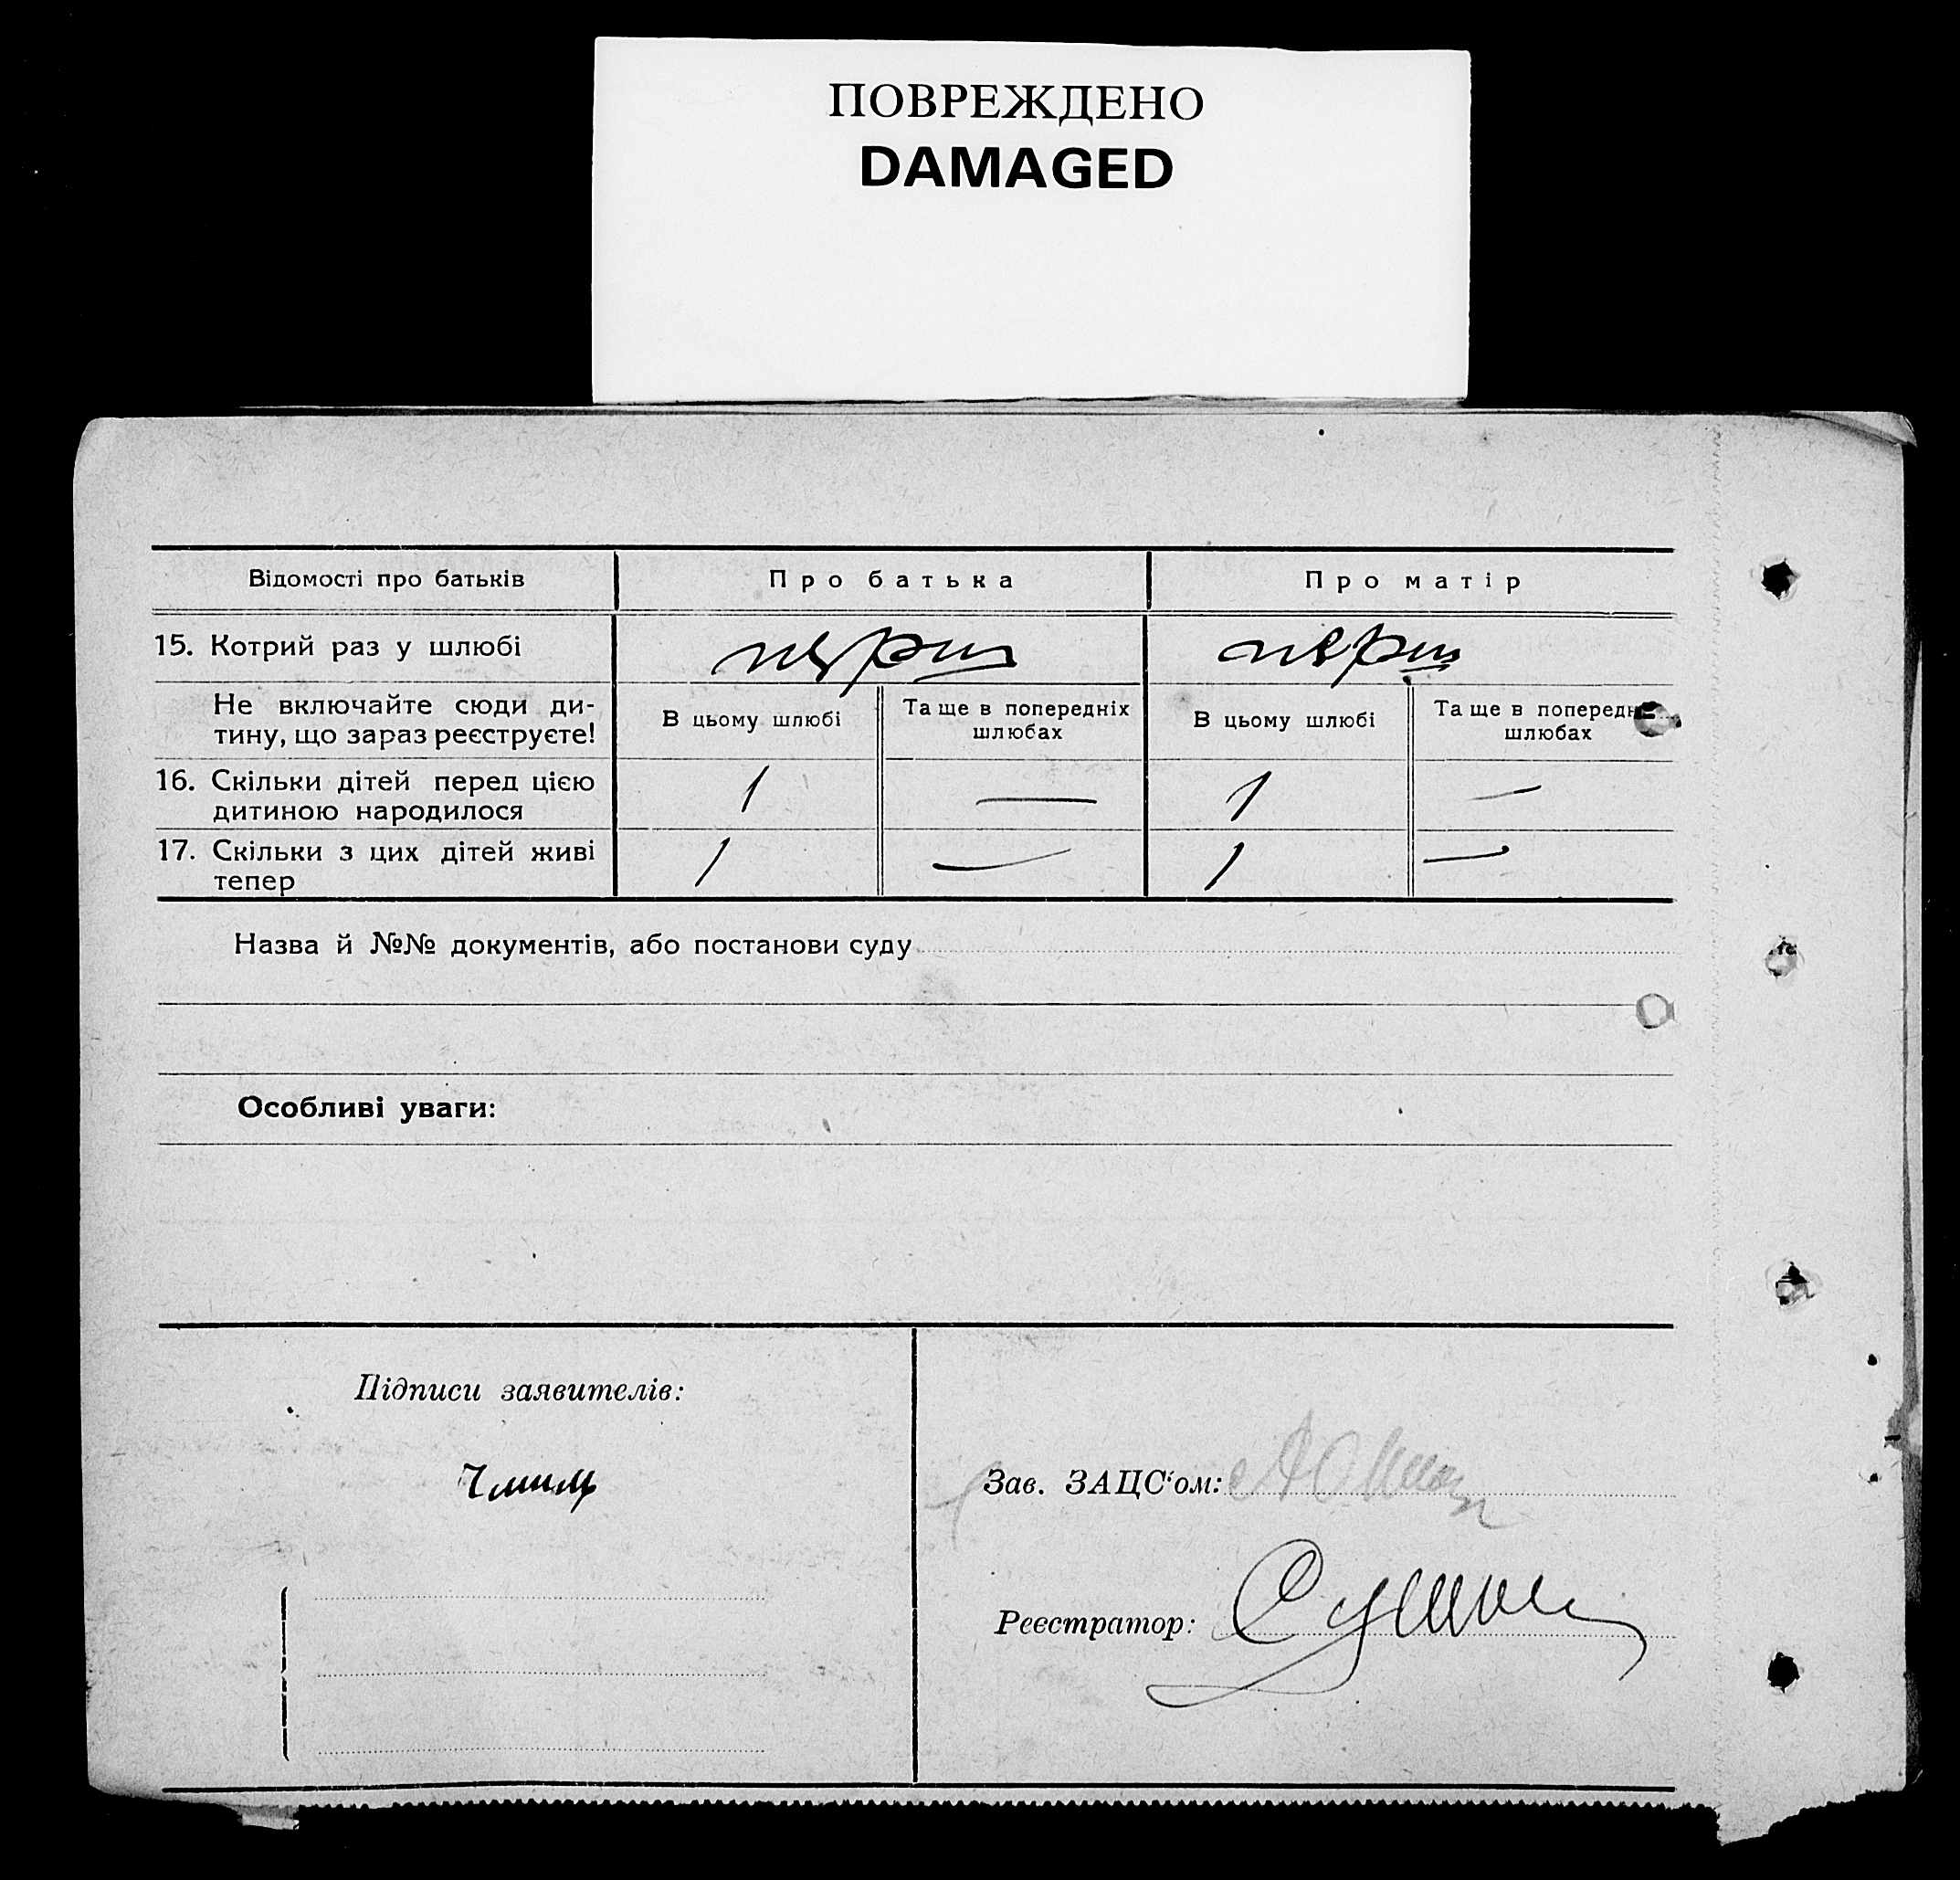 ПОВРЕЖДЕНО
DAMAGED
Відомості про батьків
Про батька
Про матір
15. Котрий раз у шлюбі
перш
перш
Не включайте сюди ди-
тину, що зараз реєструєте!
В цьому шлюбі
Та ще в попередніх
шлюбах
В цьому шлюбі
Та ще в попередн
шлюбах
16. Скільки дітей перед цією
дитиною народилося
1
—
1
—
17. Скільки з цих дітей живі
тепер
1
—
1
—
Назва й №№ документів, або постанови суду
Особливі уваги:
Підписи заявителів:
Зав. ЗАЦС'ом:
Реєстратор: